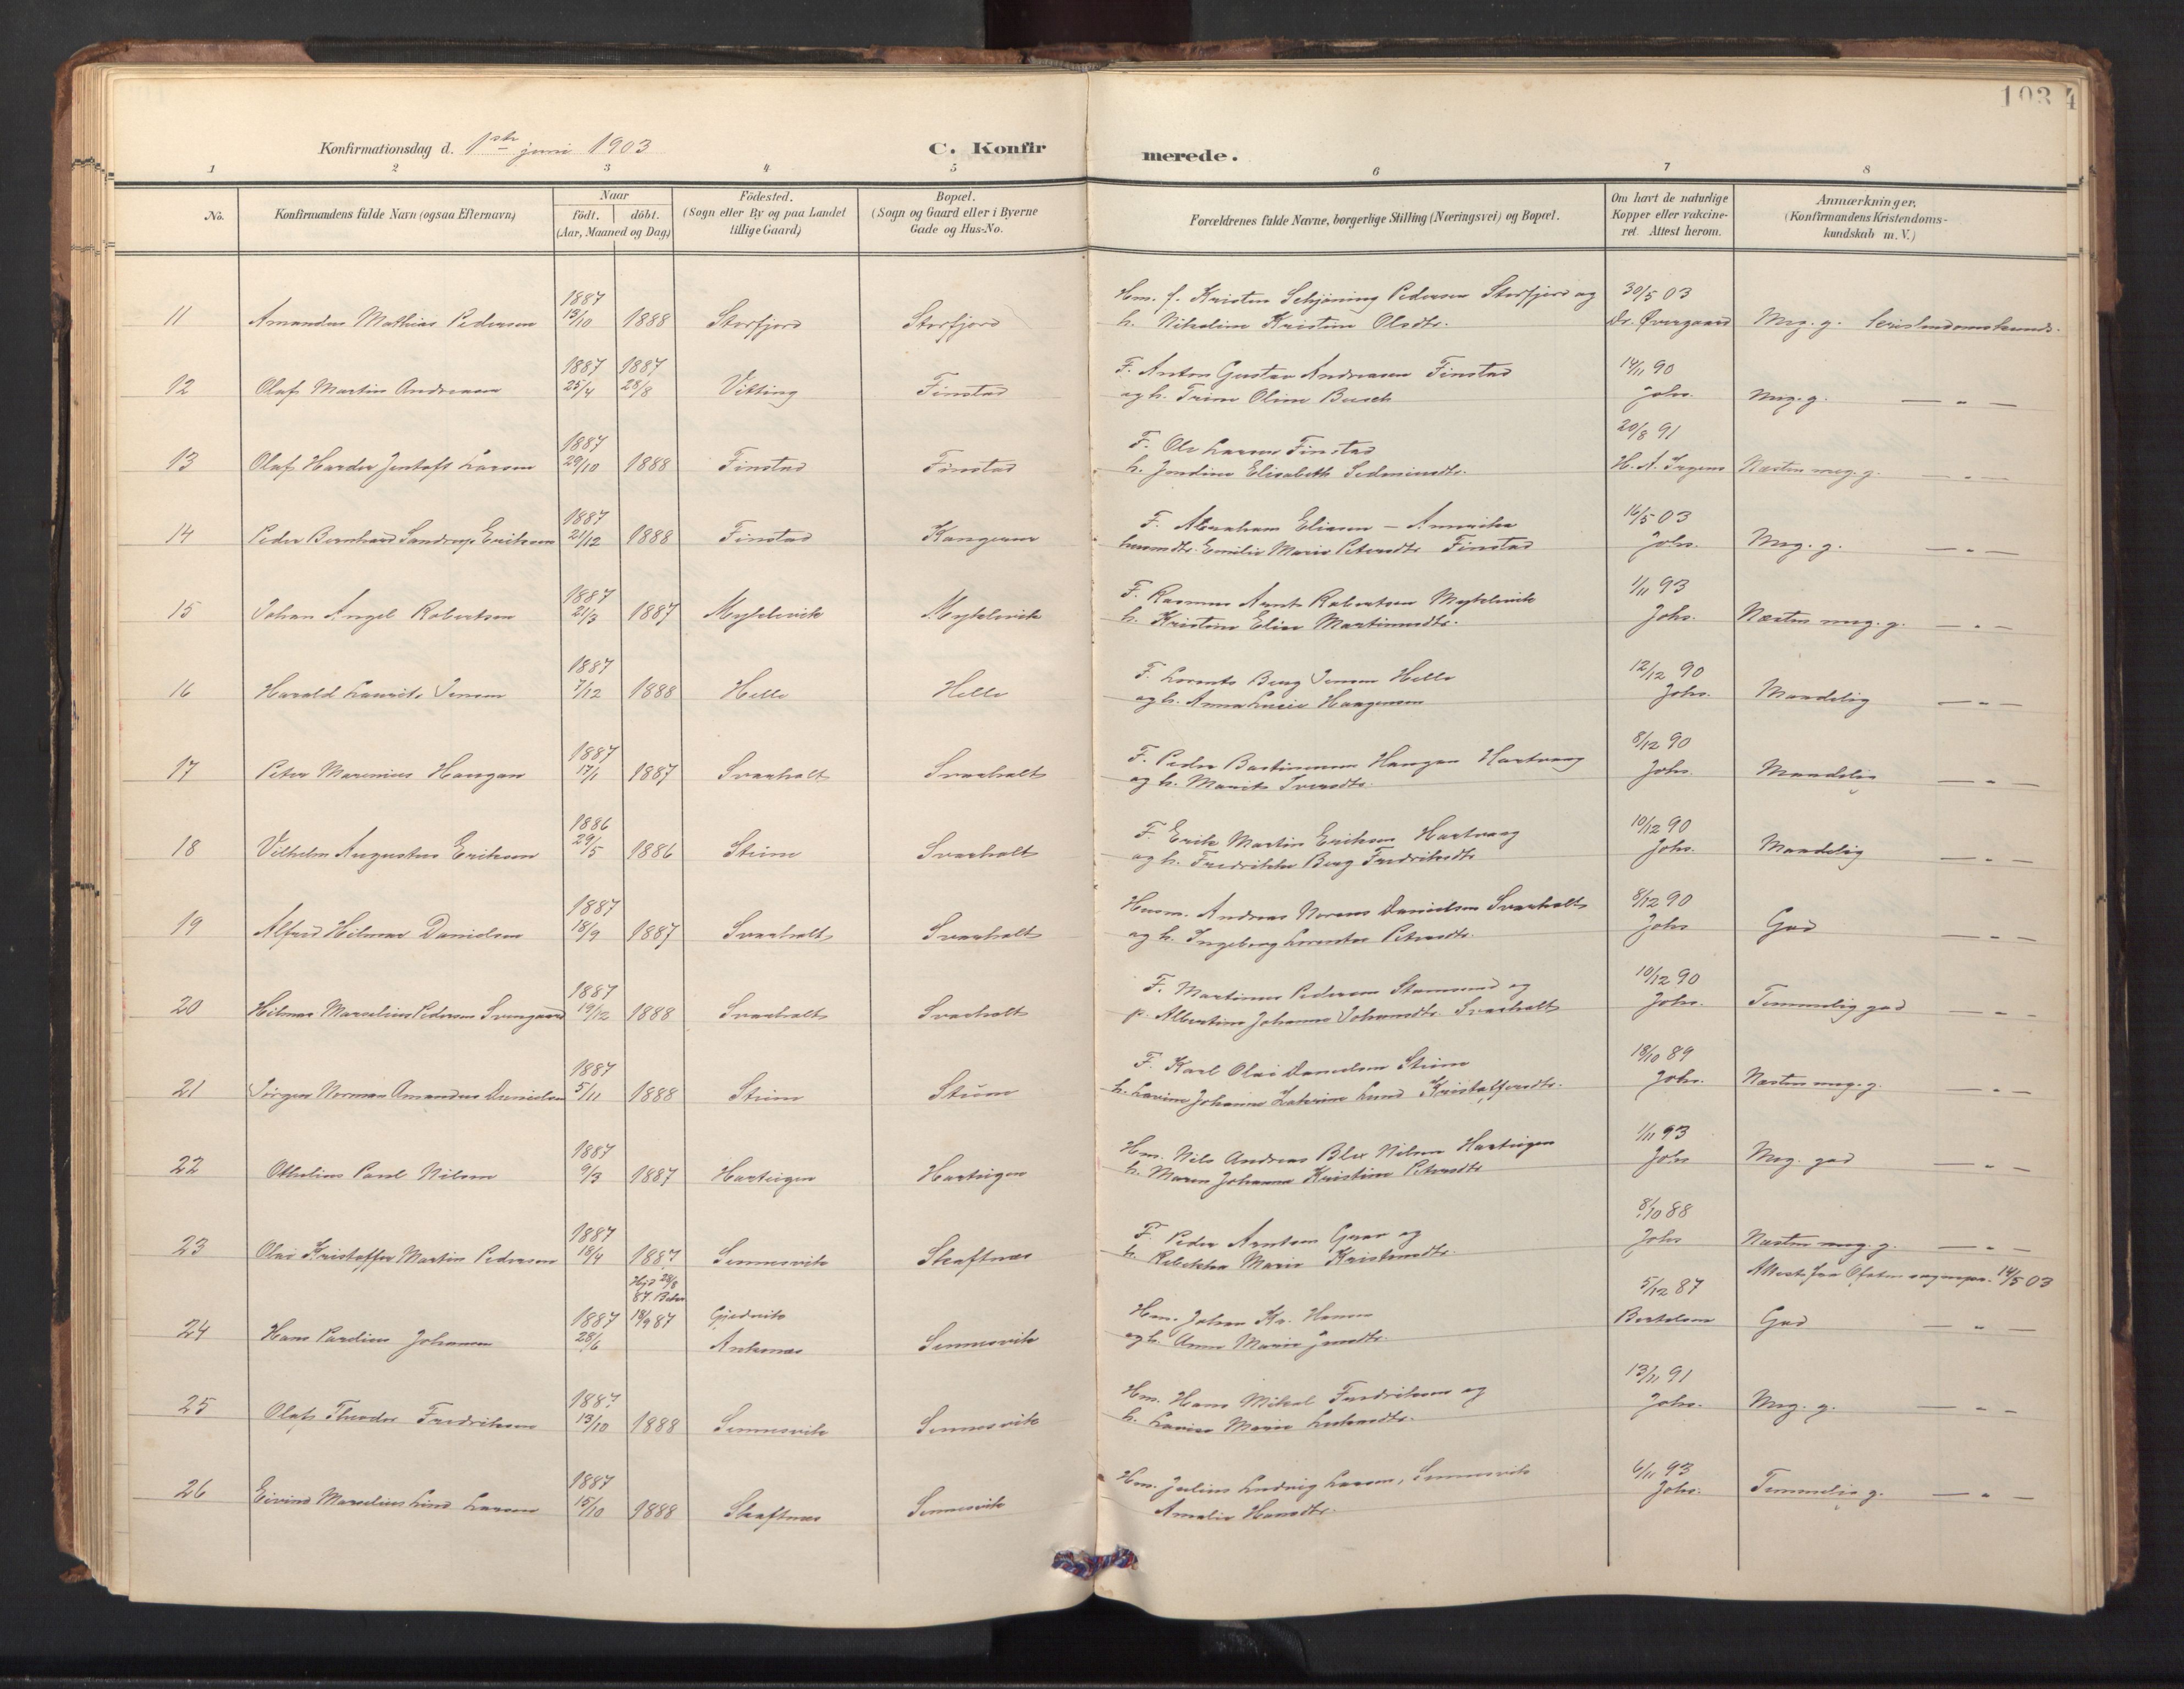 103 4
Konfirmationsdag d. 1ste juni 1903
C. Konfir merede.
1 2 3 4 5 6 7 8
No.
Konfirmandens fulde Navn (ogsaa Efternavn)
Naar
födt. döbt.
(Aar, Maaned og Dag)
Födested.
(Sogn eller By og paa Landet
tillige Gaard)
Bopæl.
(Sogn og Gaard eller i Byerne
Gade og Hus-No.
Forældrenes fulde Navne, borgerlige Stilling (Næringsvei) og Bopæl.
Om havt de naturlige
Kopper eller vakcine-
ret. Attest herom.
Anmærkninger,
(Konfirmandens Kristendoms-
kundskab m. V.)
1887 Hm. f. Kristen Schjöning Pedersen Storfjord og 30/5 03
11 Amandus Mathias Pedersen 13/10 1888 Storfjord Storfjord h. Nikoline Kristine Olsdtr. Dr. Övergaard Meg. g. Kristendomskunds.
1887 1887 F. Anton Gustav Andreasen Finstad 14/11 90
12 Olaf Martin Andreasen 25/4 28/8 Vikting Finstad og h. Trine Oline Busch Johs. Meg. g. — " —
1887 F. Ole Larsen Finstad 20/8 91
13 Olaf Harder Larsen 29/10 1888 Finstad Finstad h. Jendine Elisabeth H. A. Irgens Næsten meg. g. — " —
1887 F. Abraham Eliasen — Amerika 16/5 03
14 Peder Bernhard Eriksen 21/12 1888 Finstad Emilie Marie Petersdtr Finstad Johs. Meg. g. — " —
1887 F. Rasmus Arnt Robertsen 1/11 93
15 Johan Angel Robertsen 21/3 1887 h. Kristine Elise Martinusdtr. Johs. Næsten meg. g. — " —
1887 F. Lorents Berg Jensen Helle 12/12 90
16 Harald Laurits Jensen 7/12 1888 Helle Helle og h. Anna Lucie Haagensen Johs. Maadelig — " —
1887 F. Peder Haugan Hartvaag 8/12 90
17 Peter Marenius Haugan 17/1 1887 Svarholt Svarholt og h. Marit Johs. Maadelig — " —
1886 F. Erik Martin Eriksen Hartvaag 10/12 90
18 Vilhelm Augustus Eriksen 29/5 1886 Stüne Svarholt og h. Fredrikke Berg Fredriksdtr Johs. Maadelig — " —
1887 Husm. Andreas Norens Danielsen Svarholt 8/12 90
19 Alfred Hilmar Danielsen 18/9 1887 Svarholt Svarholt og h. Ingeborg Petersdtr. Johs God — " —
1887 F. Martinus Pedersen Stamsund og 10/12 90
20 Hilmar Marselius Pedersen Svengaard 19/12 1888 Svarholt Svarholt p. Albertine Johanne Johansdtr Svarholt Johs. Temmelig god — " —
1887 F. Karl Olai Danielsen Stüne 18/10 89
21 Jörgen Norman Amandus Danielsen 5/11 1888 Stüne Stüne h. Lavine Johanne Katrine Lund Kristoffersdtr. Johs. Næsten meg. g. — " —
1887 Hm. Nils Andreas Blix Nilsen Hartvigen 1/11 93
22 Othelius Paul Nilsen 9/3 1887 Hartvigen Hartvigen h. Maren Johanna Kristine Petersdtr Johs Meg. god — " —
1887 F. Peder Arntsen og 8/10 88
23 Olai Kristoffer Martin Pedersen 18/4 1887 Sennesvik Skaftnæs h. Rebekka Marie Kristensdtr. Johs Næsten meg. g. — " —
Hjd 28/8 Attest fra Ofoten sognepr. 14/5 03
87. 5/12 87
1887 18/9 87 Hm. Johan Kr. Hansen
24 Hans Pardius Johansen 28/6 Ankenæs Sennesvik og h. Anne Marie Bertelsen God — " —
1887 Hm. Hans Mikal Fredriksen og 13/11 91
25 Olaf Theodor Fredriksen 13/10 1888 Sennesvik Sennesvik h. Lavise Marie Johs. Meg. g. — " —
1887 Hm. Julius Ludvig Larsen, Sennesvik 6/11 93
26 Eivind Marselius Lind Larsen 15/10 1888 Skaftnæs Sennesvik Amalie Hansdtr. Johs. Temmelig g. — " —